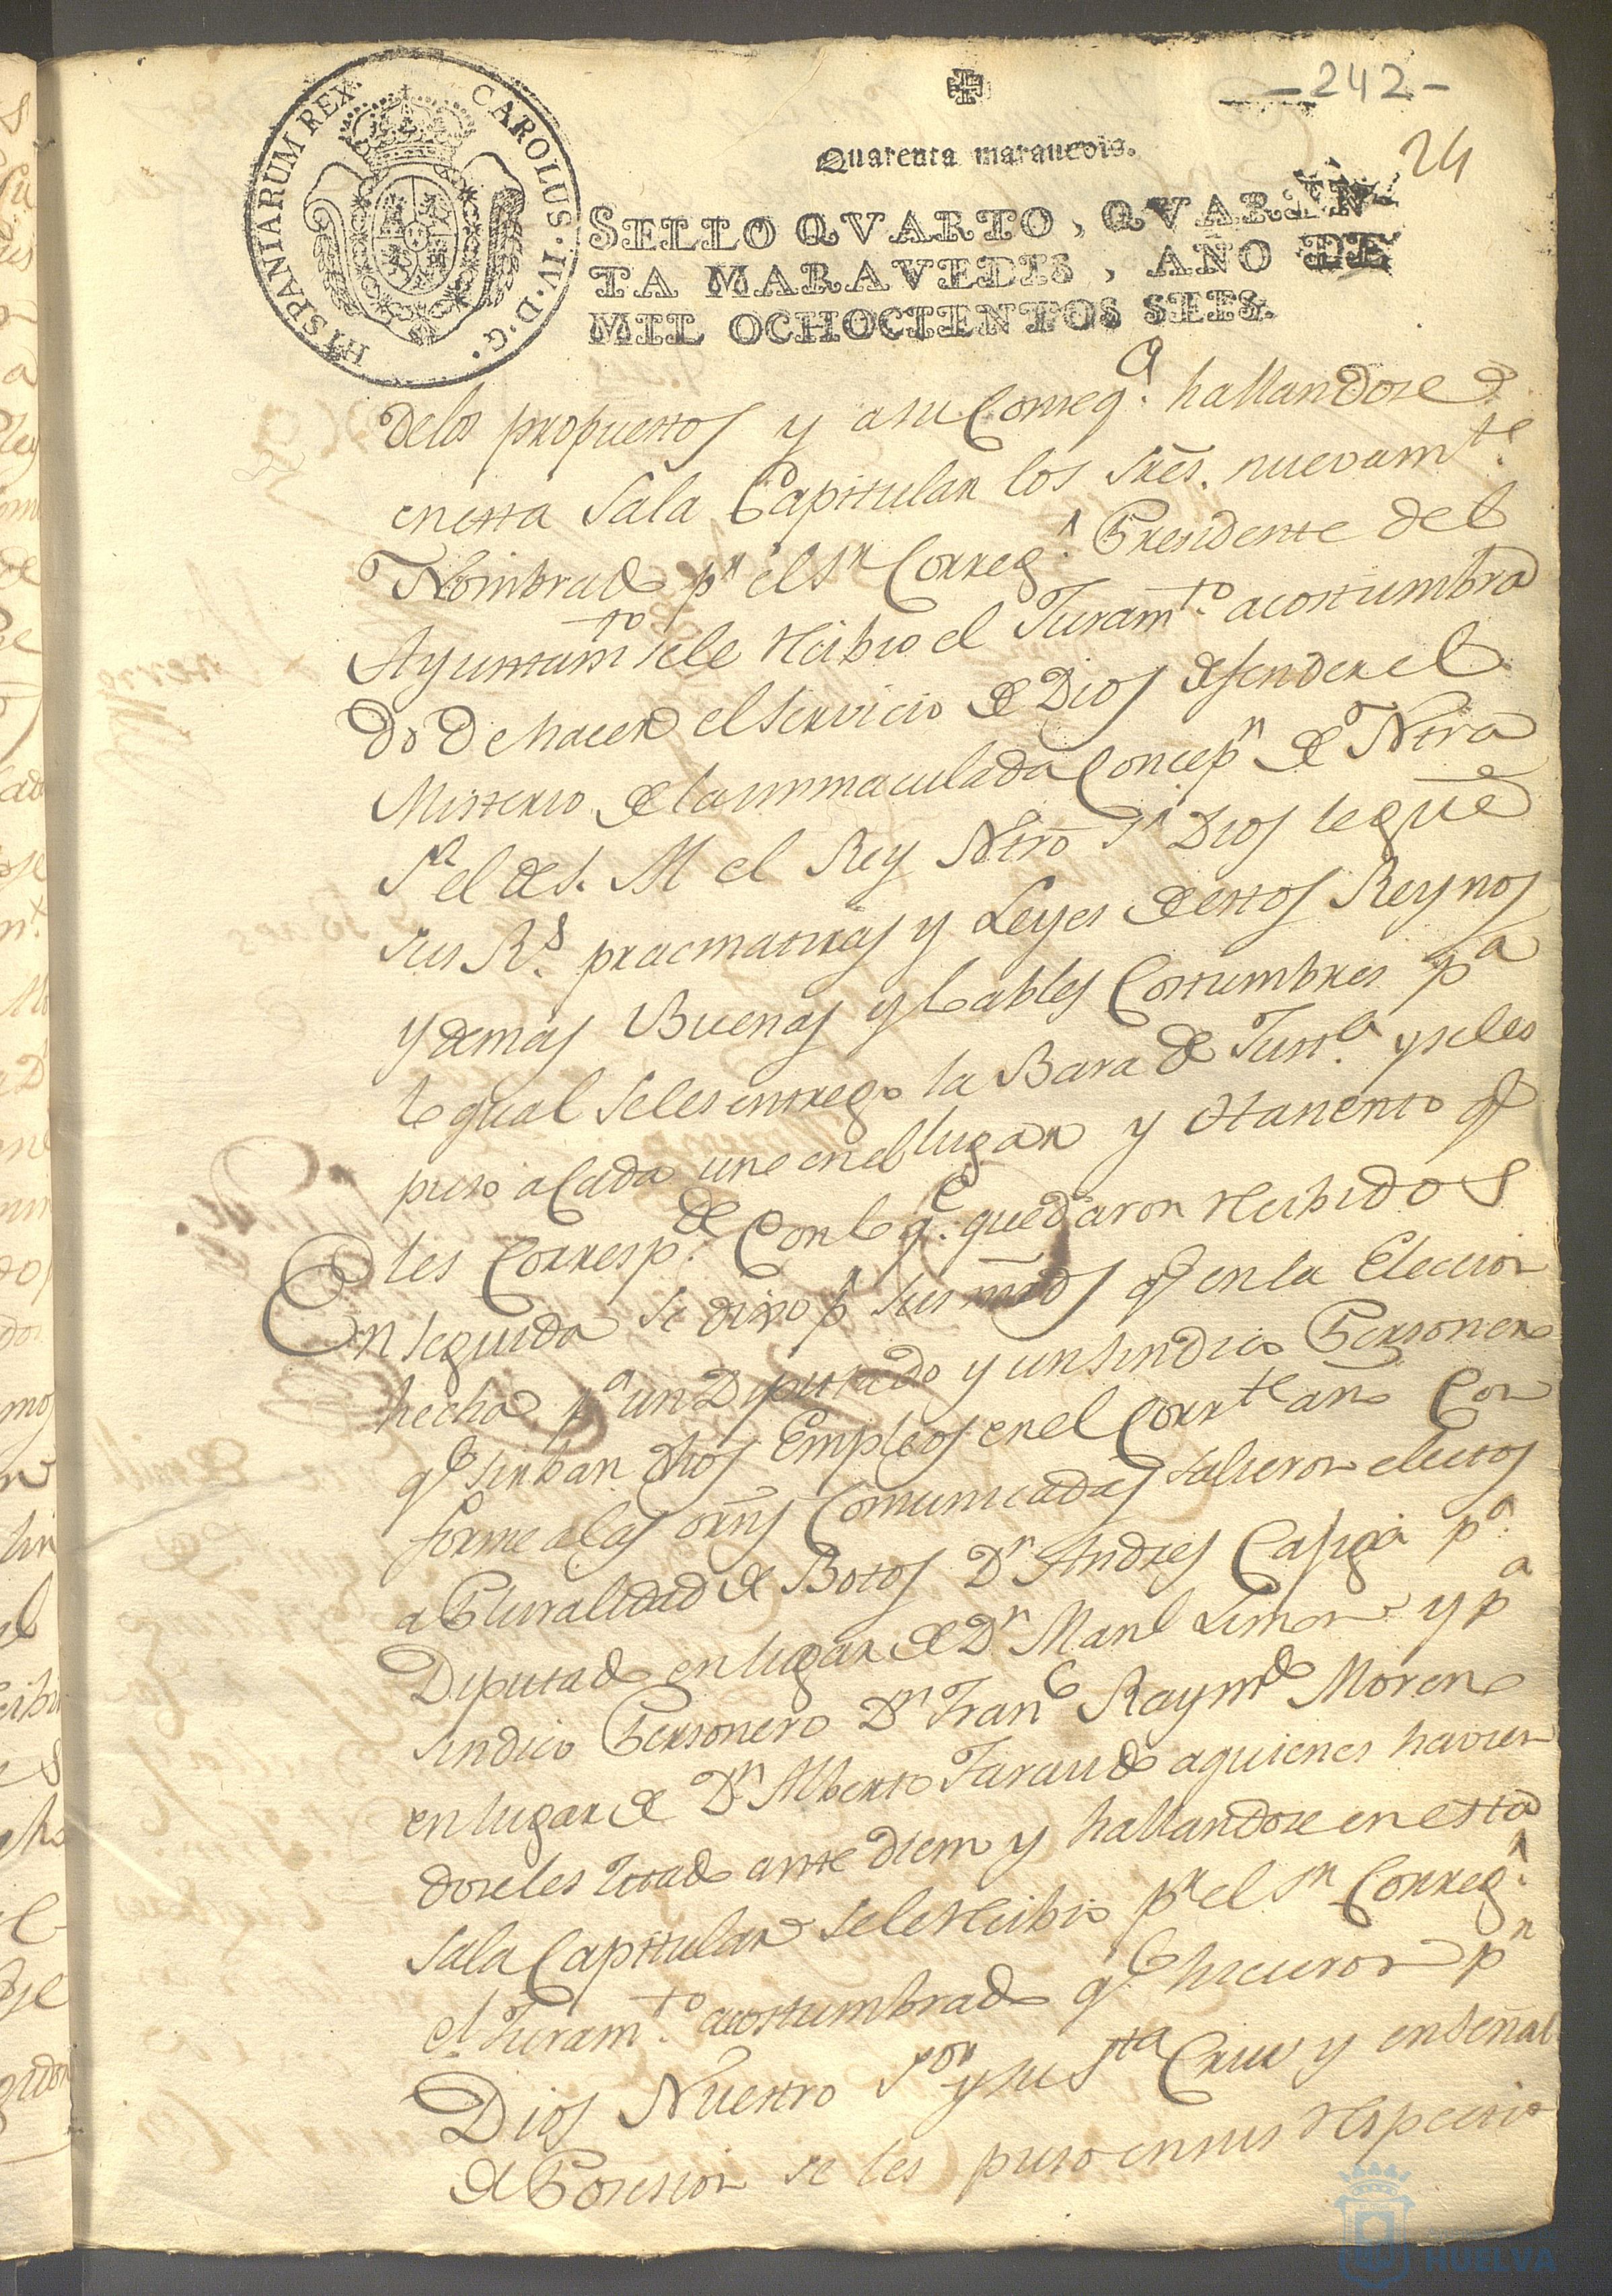 -242-
24
HISPANIARUM REX. CAROLUS·IV·D·G·
Quarenta maravedis.
SELLO QVARTO, QVAREN-
TA MARAVEDIS, AÑO DE
MIL OCHOCIENTOS SEIS.
delos propuestos y asu Conseqª. hallandose
enesta Sala Capitular los Sres. nuevamte.
Nombrads pr el Sr Corregr. Presidente del
Ayuntamto sele recibio el Juramto. acostumbra
do de hacer el servicio de Dios defender el
Misterio de la inmaculada Concepn de Ntra
Sra el de S. M el Rey Ntro Sr Dios le gue
sus Rs. pracmaticas y Leyes de estos Reynos
y demas Buenas y loables Costumbres pa
lo qual seles entrego la Bara de Justa. y seles
puso a Cada uno en el lugar y
les Correspde. Con lo qe. quedaron recibidos
En seguida se dixo pr sus mrds qe en la Eleccion
hecha pa un Diputado y un sindico Personero
qe sirban dhos Empleos en el Corrte año Con
forme a las orns Comunicadas salieron electos
a Pluralidad de Botos Dn Andres pa.
Diputado en lugar de Dn Manl Limon y pa
sindico Personero Dn Franco Raymdo Moreno
en lugar de Dn Alberto Faraudo a quienes havien
doseles Citado ante diem y hallandose en esta
Sala Capitular sele recibio pr el Sr Corregr.
el Juramto. acostumbrado qe. hicieron pr
Dios Nuestro Sor y su Sta Cruz y en señal
de Posesion se les puso en sus respectivo
HUELVA